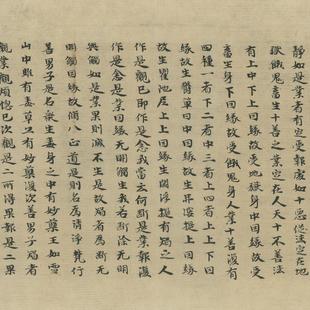 靜如是業者有定受報處如十惡法定在地
獄餓鬼畜生十善之業定在人天十不善法
有上中下上因緣故受地獄身中因緣故受
畜生身下因緣故受餓鬼身人業十善復有
四種一者下二者中三者上四者上上下因
緣故生欝單曰中因緣故生弗婆提上因緣
故生瞿陁尼上上因緣生閻浮提有智之人
作是觀已即作是念我當云何斷是業報復
作是念是業因緣無明觸生我若斷除無明
與觸如是業果則滅不生是故智者為斷無
明觸因緣故脩八正道是則名為清淨梵行
善男子是名衆生毒身之中有妙藥王如雪
山中雖有毒草亦有妙藥復次善男子智者
觀業觀煩惱已次觀是二所得果報是二果